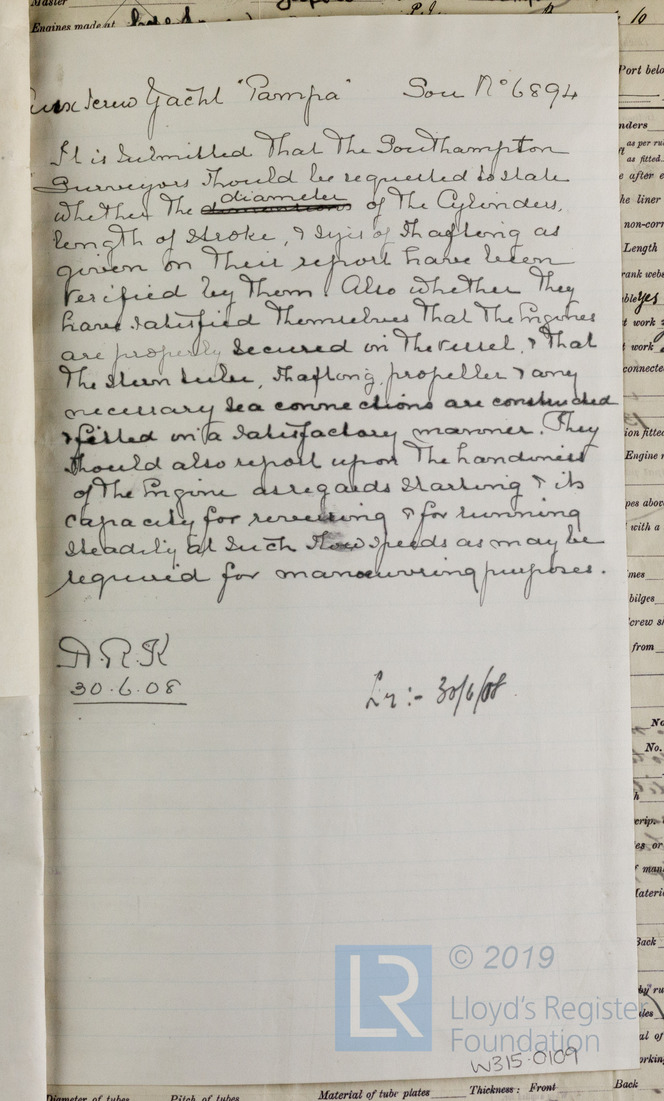 Master
Engines made at
Screw Yacht "Pampa" Sou No 6894
It is submitted that the Southampton
Surveyors should be requested to state
whether the diameter of the Cylinders,
length of Stroke, & size of shafting as
given on their report have been
verified by them. Also whether they
have satisfied themselves that the Engines
are properly secured in the vessel, & that
the stern tube, shafting, propeller & any
necessary sea connections are constructed
& fitted in a satisfactory manner. They
should also report upon the handiness
of the Engine as regards starting & its
capacity for reversing & for running
steadily at such slow speeds as may be
required for manoeuvring purposes.
30.6.08
Lr:- 30/6/08
© 2019
LR
Lloyd's Register
Foundation
W315-0109
Port belo
nders
as per ru
as fitted
e after e
he liner
non-corr
Length
rank webs
yes
t work
work
connected
ion fitted
Engine r
pes abov
with a
mes
bilges
crew s
from
No
No.
crip.
es or
man
ateri
Back
by ru
Diameter of tubes Pitch of tubes Material of tube plates Thickness: Front Back